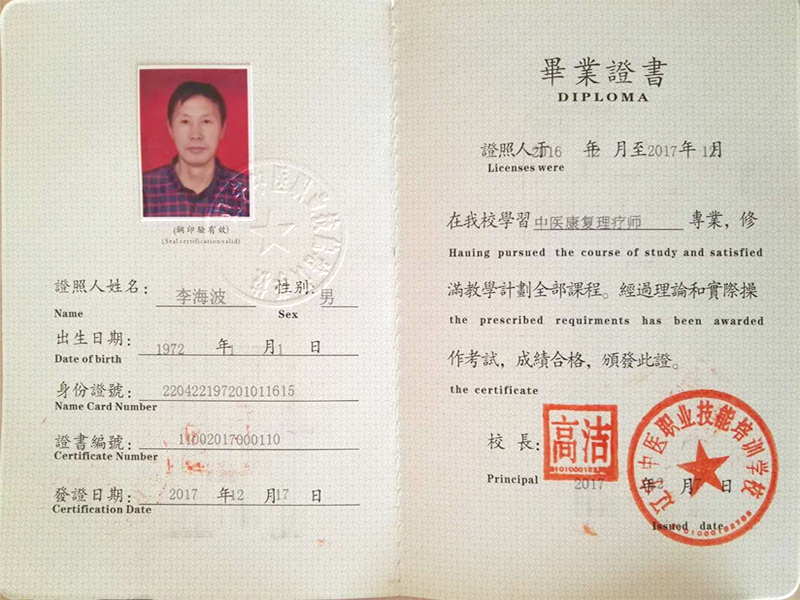 (鋼印驗有效)
(Seal certification valid)
證照人姓名: 李海波 性别: 男
Name Sex
出生日期: 1972 年 1 月 1 日
Date of birth
身份證號: 220422197201011615
Name Card Number
證書編號: 11002017000110
Certificate Number
發證日期: 2017 年 12 月 17 日
Certification Date
畢業證書
DIPLOMA
證照人于 2016 年 12 月至 2017 年 12 月
Licenses were
在我校學習 中医康复理疗师 專業，修
Hauing pursued the course of study and satisfied
滿教學計劃全部課程。經過理論和實際操
the prescribed requirments has been awarded
作考試，成績合格，頒發此證。
the certificate
校長: 高洁
Principal 2017 年 12 月 日
Issued date
辽宁中医职业技能培训学校